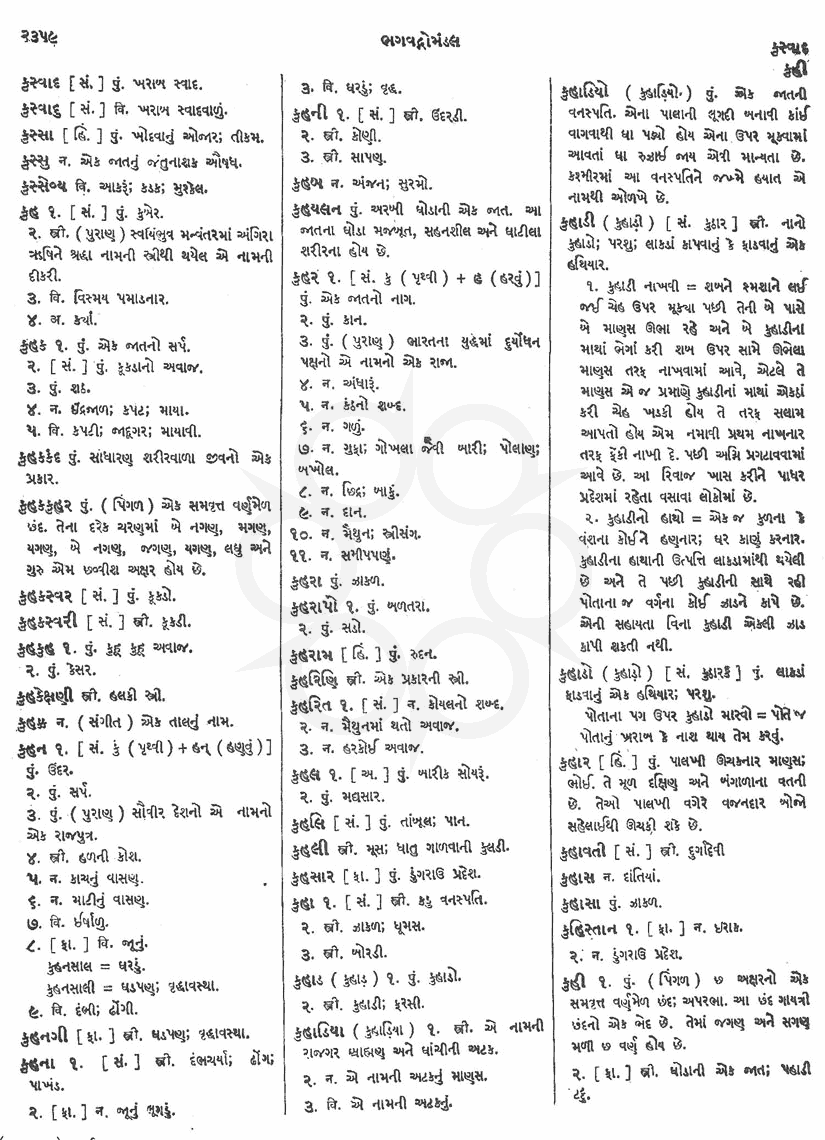 ૨૩૫૯
ભગવદ્ગોમંડલ
કુસ્વાદ
કુહી
કુસ્વાદ [ સં. ] પું. ખરાબ સ્વાદ.
કુસ્વાદુ [ સં. ] વિ. ખરાબ સ્વાદવાળું.
કુસ્સા [ હિં. ] પું. ખોદવાનું ઓજાર; તીકમ.
કુસ્સુ ન. એક જાતનું જંતુનાશક ઔષધ.
કુસ્સેવ્ય વિ. આકરૂં; કડક; મુશ્કેલ.
કુહ ૧. [ સં. ] પું. કુબેર.
૨. સ્ત્રી. ( પુરાણ ) સ્વયંભુવ મન્વંતરમાં અંગિરા
ઋષિને શ્રદ્ધા નામની સ્ત્રીથી થયેલ એ નામની
દીકરી.
૩. વિ. વિસ્મય પમાડનાર.
૪. અ. કર્યાં.
કુહક ૧. પું. એક જાતનો સર્પ.
૨. [ સં. ] પું. કૂકડાનો અવાજ.
૩. પું. શઠ.
૪. ન. ઈંદ્રજાળ; કપટ; માયા.
૫. વિ. કપટી; જાદૂગર; માયાવી.
કુહકકંદ પું. સાધારણ શરીરવાળા જીવનો એક
પ્રકાર.
કુહકકુહર પું. ( પિંગળ ) એક સમવૃત્ત વર્ણમેળ
છંદ. તેના દરેક ચરણમાં બે નગણ, મગણ,
યગણ, બે નગણ, જગણ, યગણ, લઘુ અને
ગુરુ એમ છવ્વીશ અક્ષર હોય છે.
કુહકસ્વર [ સં. ] પું. કૂકડો.
કુહકસ્વરી [ સં. ] સ્ત્રી. કૂકડી.
કુહકુહ ૧. પું. કુહૂ કુહૂ અવાજ.
૨. પું. કેસર.
કુહકેક્ષણી સ્ત્રી. હલકી સ્ત્રી.
કુહક્ક ન. ( સંગીત ) એક તાલનું નામ.
કુહન ૧. [ સં. કુ ( પૃથ્વી ) + હન્ ( હણવું ) ]
પું. ઉંદર.
૨. પું. સર્પ.
૩. પું. ( પુરાણ ) સૌવીર દેશનો એ નામનો
એક રાજપુત્ર.
૪. સ્ત્રી. હળની કોશ.
૫. ન. કાચનું વાસણ.
૬. ન. માટીનું વાસણ.
૭. વિ. ઈર્ષાળુ.
૮. [ ફા. ] વિ. જૂનું.
કુહનસાલ = ઘરડું.
કુહનસાલી = ઘડપણ; વૃદ્ધાવસ્થા.
૯. વિ. દંભી; ઢોંગી.
કુહનગી [ ફા. ] સ્ત્રી. ઘડપણ; વૃદ્ધાવસ્થા.
કુહના ૧. [ સં. ] સ્ત્રી. દંભચર્યા; ઢોંગ;
પાખંડ.
૨. [ ફા. ] ન. જૂનું લૂગડું.
૩. વિ. ઘરડું; વૃદ્ધ.
કુહની ૧. [ સં. ] સ્ત્રી. ઉંદરડી.
૨. સ્ત્રી. કોણી.
૩. સ્ત્રી. સાપણ.
કુહબ ન. અંજન; સુરમો.
કુહયલન પું. અરબી ઘોડાની એક જાત. આ
જાતના ઘોડા મજબૂત, સહનશીલ અને ઘાટીલા
શરીરના હોય છે.
કુહર ૧. [ સં. કુ ( પૃથ્વી ) + હૃ ( હરવું ) ]
પું. એક જાતનો નાગ.
૨. પું. કાન.
૩. પું. ( પુરાણ ) ભારતના યુદ્ધમાં દુર્યોધન
પક્ષનો એ નામનો એક રાજા.
૪. ન. અંધારૂં.
૫. ન. કંઠનો શબ્દ.
૬. ન. ગળું.
૭. ન. ગુફા; ગોખલા જેવી બારી; પોલાણ;
બખોલ.
૮. ન. છિદ્ર; બાકું.
૯. ન. દાન.
૧૦. ન. મૈથુન; સ્ત્રીસંગ.
૧૧. ન. સમીપપણું.
કુહરા પું. ઝાકળ.
કુહરાપો ૧. પું. બળતરા.
૨. પું. સડો.
કુહરામ [ હિં. ] પું. રુદન.
કુહરિણિ સ્ત્રી. એક પ્રકારની સ્ત્રી.
કુહરિત ૧. [ સં. ] ન. કોયલનો શબ્દ.
૨. ન. મૈથુનમાં થતો અવાજ.
૩. ન. હરકોઈ અવાજ.
કુહલ ૧. [ અ. ] પું. બારીક સોયરૂં.
૨. પું. મદ્યસાર.
કુહલિ [ સં. ] પું. તાંબૂલ; પાન.
કુહલી સ્ત્રી. મૂસ; ધાતુ ગાળવાની કુલડી.
કુહસાર [ ફા. ] પું. ડુંગરાઉ પ્રદેશ.
કુહા ૧. [ સં. ] સ્ત્રી. કટુ વનસ્પતિ.
૨. સ્ત્રી. ઝાકળ; ધૂમસ.
૩. સ્ત્રી. બોરડી.
કુહાડ ( કુહાડ઼ ) ૧. પું. કુહાડો.
૨. સ્ત્રી. કુહાડી; ફરસી.
કુહાડિયા ( કુહાડ઼િયા ) ૧. સ્ત્રી. એ નામની
રાજગર બ્રાહ્મણ અને ઘાંચીની અટક.
૨. ન. એ નામની અટકનું માણસ.
૩. વિ. એ નામની અટકનું.
કુહાડિયો ( કુહાડ઼િયો ) પું. એક જાતની
વનસ્પતિ. એના પાલાની લૂગદી બનાવી કાંઈ
વાગવાથી ઘા પડ્યો હોય એના ઉપર મૂકવામાં
આવતાં ઘા રુઝાઈ જાય એવી માન્યતા છે.
કાશ્મીરમાં આ વનસ્પતિને જખ્મે હયાત એ
નામથી ઓળખે છે.
કુહાડી ( કુહાડ઼ી ) [ સં. કુઠાર ] સ્ત્રી. નાનો
કુહાડો; પરશુ; લાકડાં કાપવાનું કે ફાડવાનું એક
હથિયાર.
૧. કુહાડી નાખવી = શબને શ્મશાને લઈ
જઈ ચેહ ઉપર મૂક્યા પછી તેની બે પાસે
બે માણસ ઊભા રહે અને બે કુહાડીના
માથાં ભેગાં કરી શબ ઉપર સામે ઊભેલા
માણસ તરફ નાખવામાં આવે, એટલે તે
માણસ એ જ પ્રમાણે કુહાડીનાં માથાં એકઠાં
કરી ચેહ ખડકી હોય તે તરફ સલામ
આપતો હોય એમ નમાવી પ્રથમ નાખનાર
તરફ ફેંકી નાખી દે. પછી અગ્નિ પ્રગટાવવામાં
આવે છે. આ રિવાજ ખાસ કરીને પાધર
પ્રદેશમાં રહેતા વસાવા લોકોમાં છે.
૨. કુહાડીનો હાથો = એક જ કુળના કે
વંશના કોઈને હણનાર; ઘર કાણું કરનાર.
કુહાડીના હાથાની ઉત્પત્તિ લાકડામાંથી થયેલી
છે અને તે પછી કુહાડીની સાથે રહી
પોતાના જ વર્ગના કોઈ ઝાડને કાપે છે.
એની સહાયતા વિના કુહાડી એકલી ઝાડ
કાપી શકતી નથી.
કુહાડો ( કુહાડ઼ો ) [ સં. કુઠારક ] પું. લાકડાં
ફાડવાનું એક હથિયાર; પરશુ.
પોતાના પગ ઉપર કુહાડો મારવો = પોતે જ
પોતાનું ખરાબ કે નાશ થાય તેમ કરવું.
કુહાર [ હિં. ] પું. પાલખી ઊચકનાર માણસ;
ભોઈ. તે મૂળ દક્ષિણ અને બંગાળાના વતની
છે. તેઓ પાલખી વગેરે વજનદાર બોજો
સહેલાઈથી ઊચકી શકે છે.
કુહાવતી [ સં. ] સ્ત્રી. દુર્ગાદેવી
કુહાસ ન. દાંતિયાં.
કુહાસા પું. ઝાકળ.
કુહિસ્તાન ૧. [ ફા. ] ન. ઇરાક.
૨. ન. ડુંગરાઉ પ્રદેશ.
કુહી ૧. પું. ( પિંગળ ) છ અક્ષરનો એક
સમવૃત્ત વર્ણમેળ છંદ; અપરભા. આ છંદ ગાયત્રી
છંદનો એક ભેદ છે. તેમાં જગણ અને સગણ
મળી છ વર્ણ હોય છે.
૨. [ ફા. ] સ્ત્રી. ઘોડાની એક જાત; પહાડી
ટટ્ટુ.